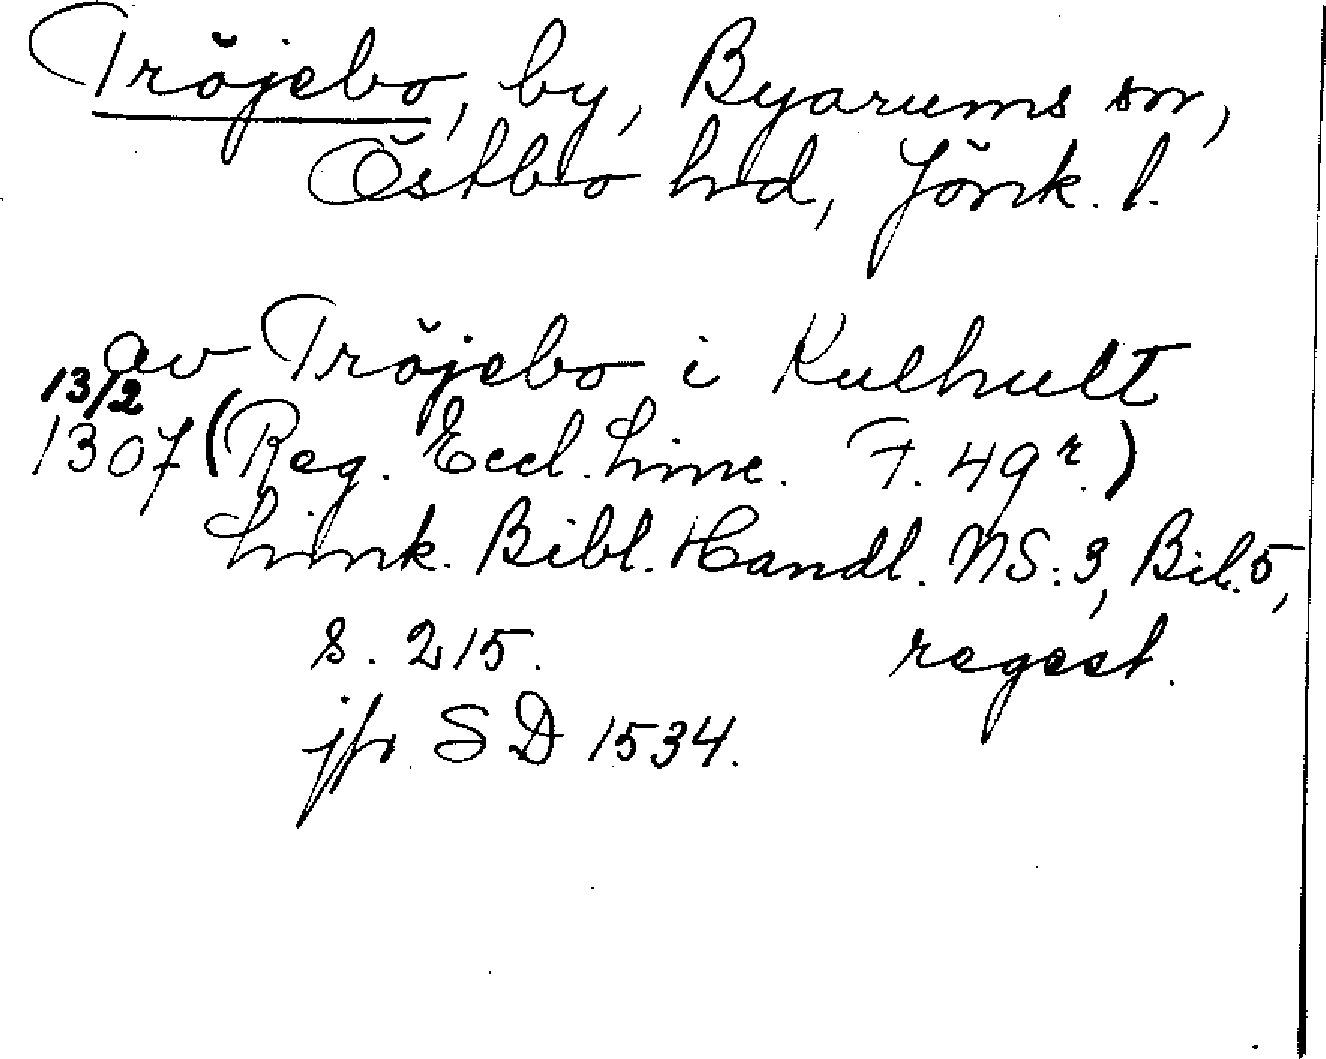 Tröjebo, by, Byarums sn,
Östbo hd, Jönk. l.
av Tröjebo i Kulhult
13/2
1307 (Reg. Eccl. Linc. F. 49r.)
Link. Bibl. Handl. NS: 3, Bil. 5,
s. 215. regest.
jfr SD 1534.